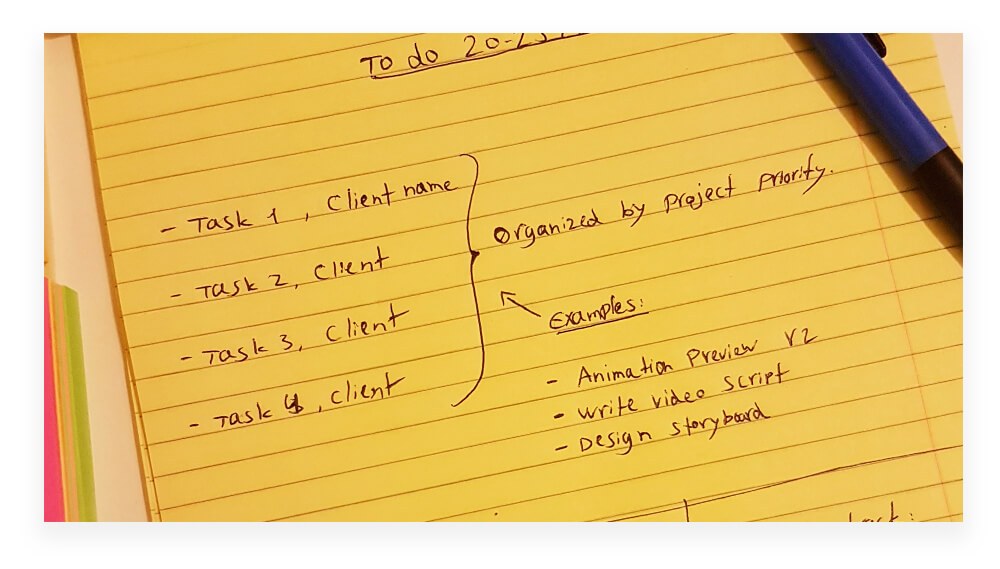 To do
- Task 1, Client name
- Task 2, Client
- Task 3, Client
- Task 4, Client
Organized by Project Priority.
Examples:
- Animation Preview V2
- Write video script
- Design storyboard